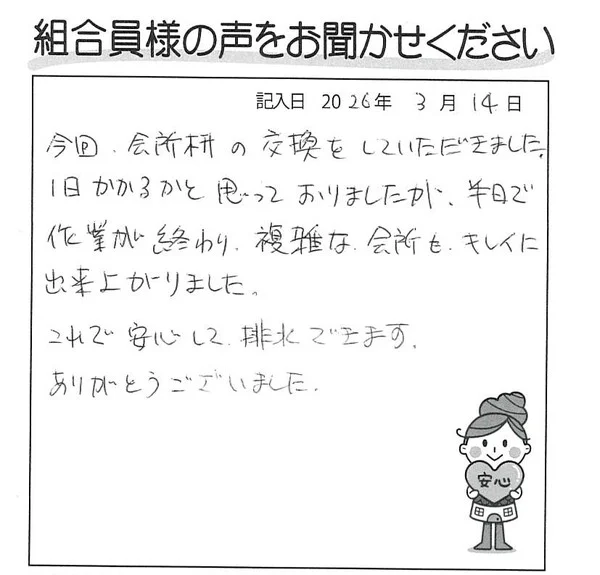 組合員様の声をお聞かせください
記入日 2026年 3月14日
今回、会所桝の交換をしていただきました。
1日かかるかと思っておりましたが、半日で
作業が終わり、複雑な会所も、キレイに
出来上がりました。
これで安心して排水できます。
ありがとうございました。
安心